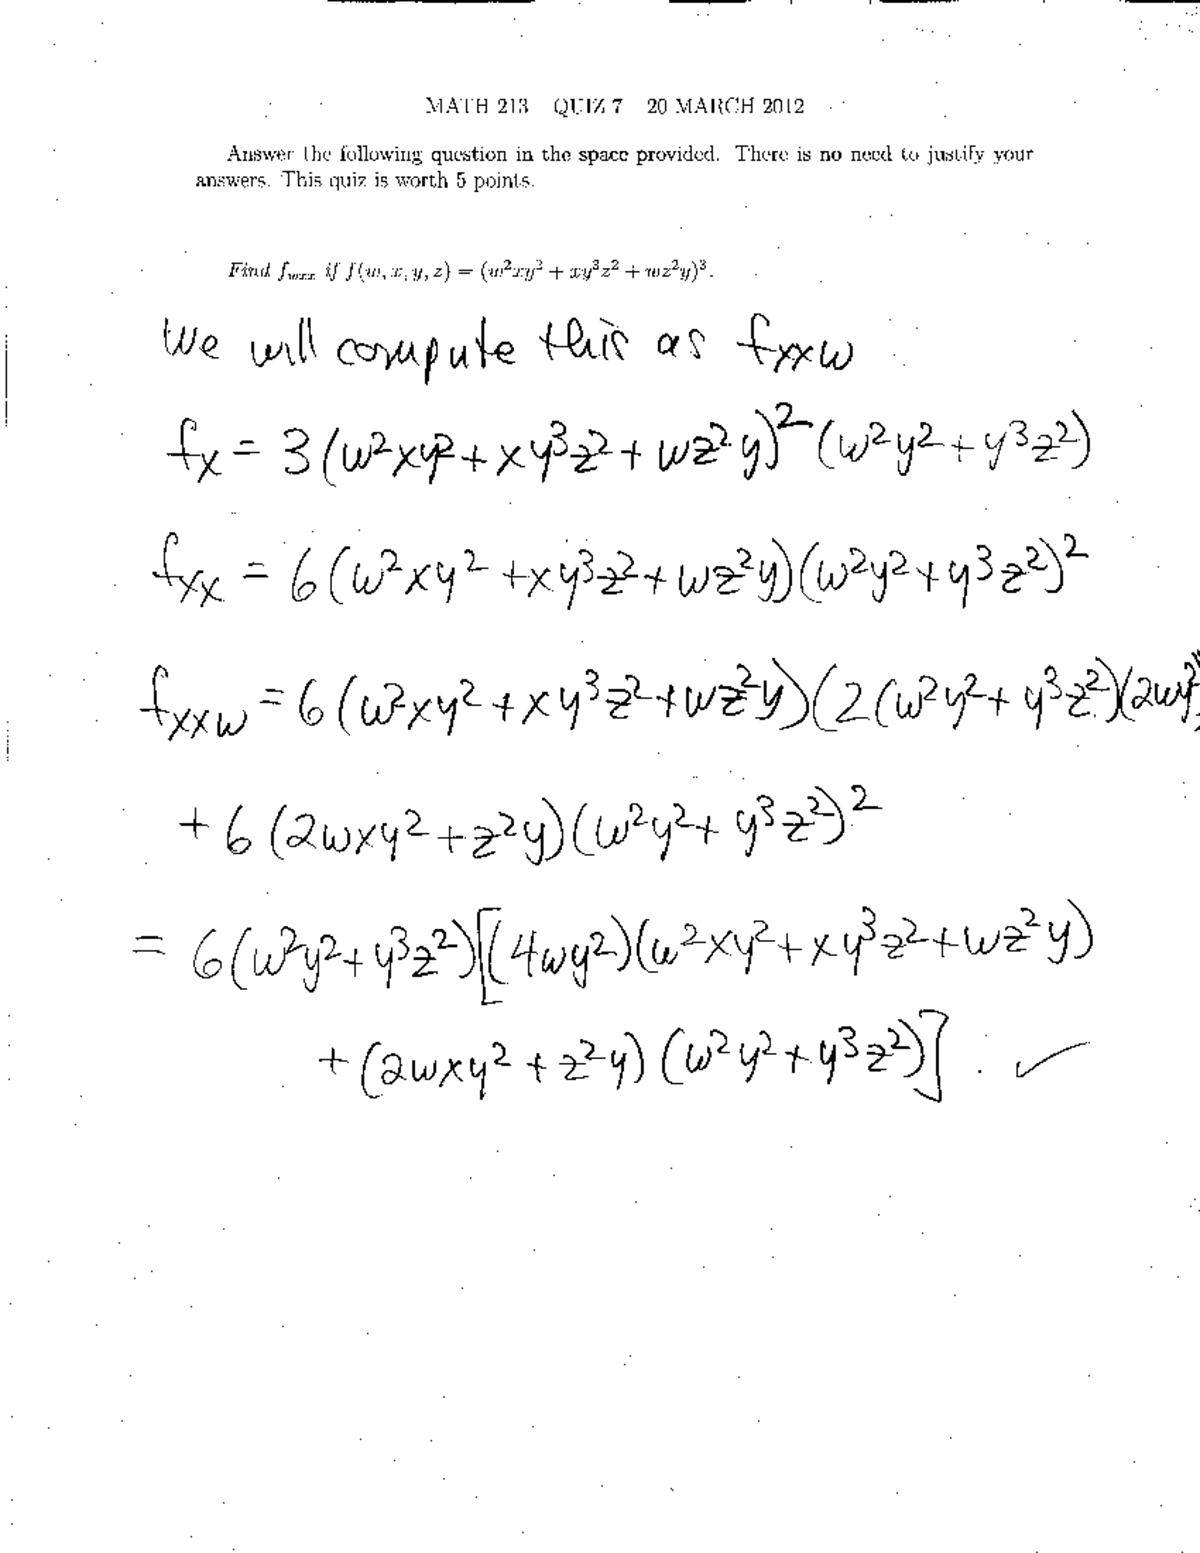 MATH 213 QUIZ 7 20 MARCH 2012
Answer the following question in the space provided. There is no need to justify your
answers. This quiz is worth 5 points.
Find f_{wxx} if f(w, x, y, z) = (w²xy² + xy³z² + wz²y)³.
We will compute this as f_{xxw}
f_x = 3(w²xy² + xy³z² + wz²y)²(w²y² + y³z²)
f_{xx} = 6(w²xy² + xy³z² + wz²y)(w²y² + y³z²)²
f_{xxw} = 6(w²xy² + xy³z² + wz²y)(2(w²y² + y³z²)(2wy²))
+ 6(2wxy² + z²y)(w²y² + y³z²)²
= 6(w²y² + y³z²)[(4wy²)(w²xy² + xy³z² + wz²y)
+ (2wxy² + z²y)(w²y² + y³z²)]. ✓